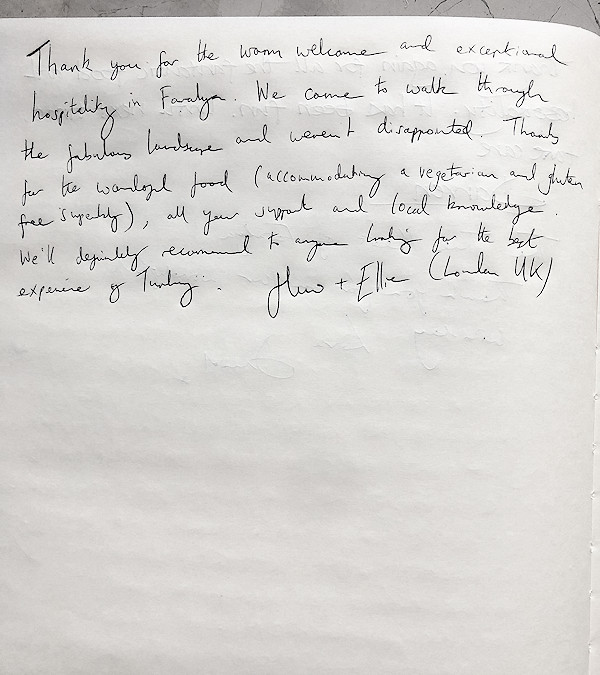 Thank you for the warm welcome and exceptional
hospitality in Faralya. We came to walk through
the fabulous landscape and weren't disappointed. Thanks
for the wonderful food (accommodating a vegetarian and gluten
free superbly), all your support and local knowledge.
We'll definitely recommend to anyone looking for the best
experience of Turkey. + Ellie (London UK)